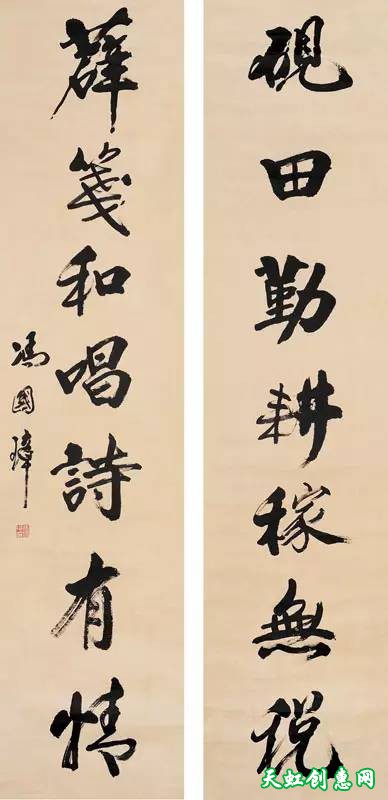 硯田勤耕稼無税
薜箋和唱詩有情
馮國璋
天虹创惠网